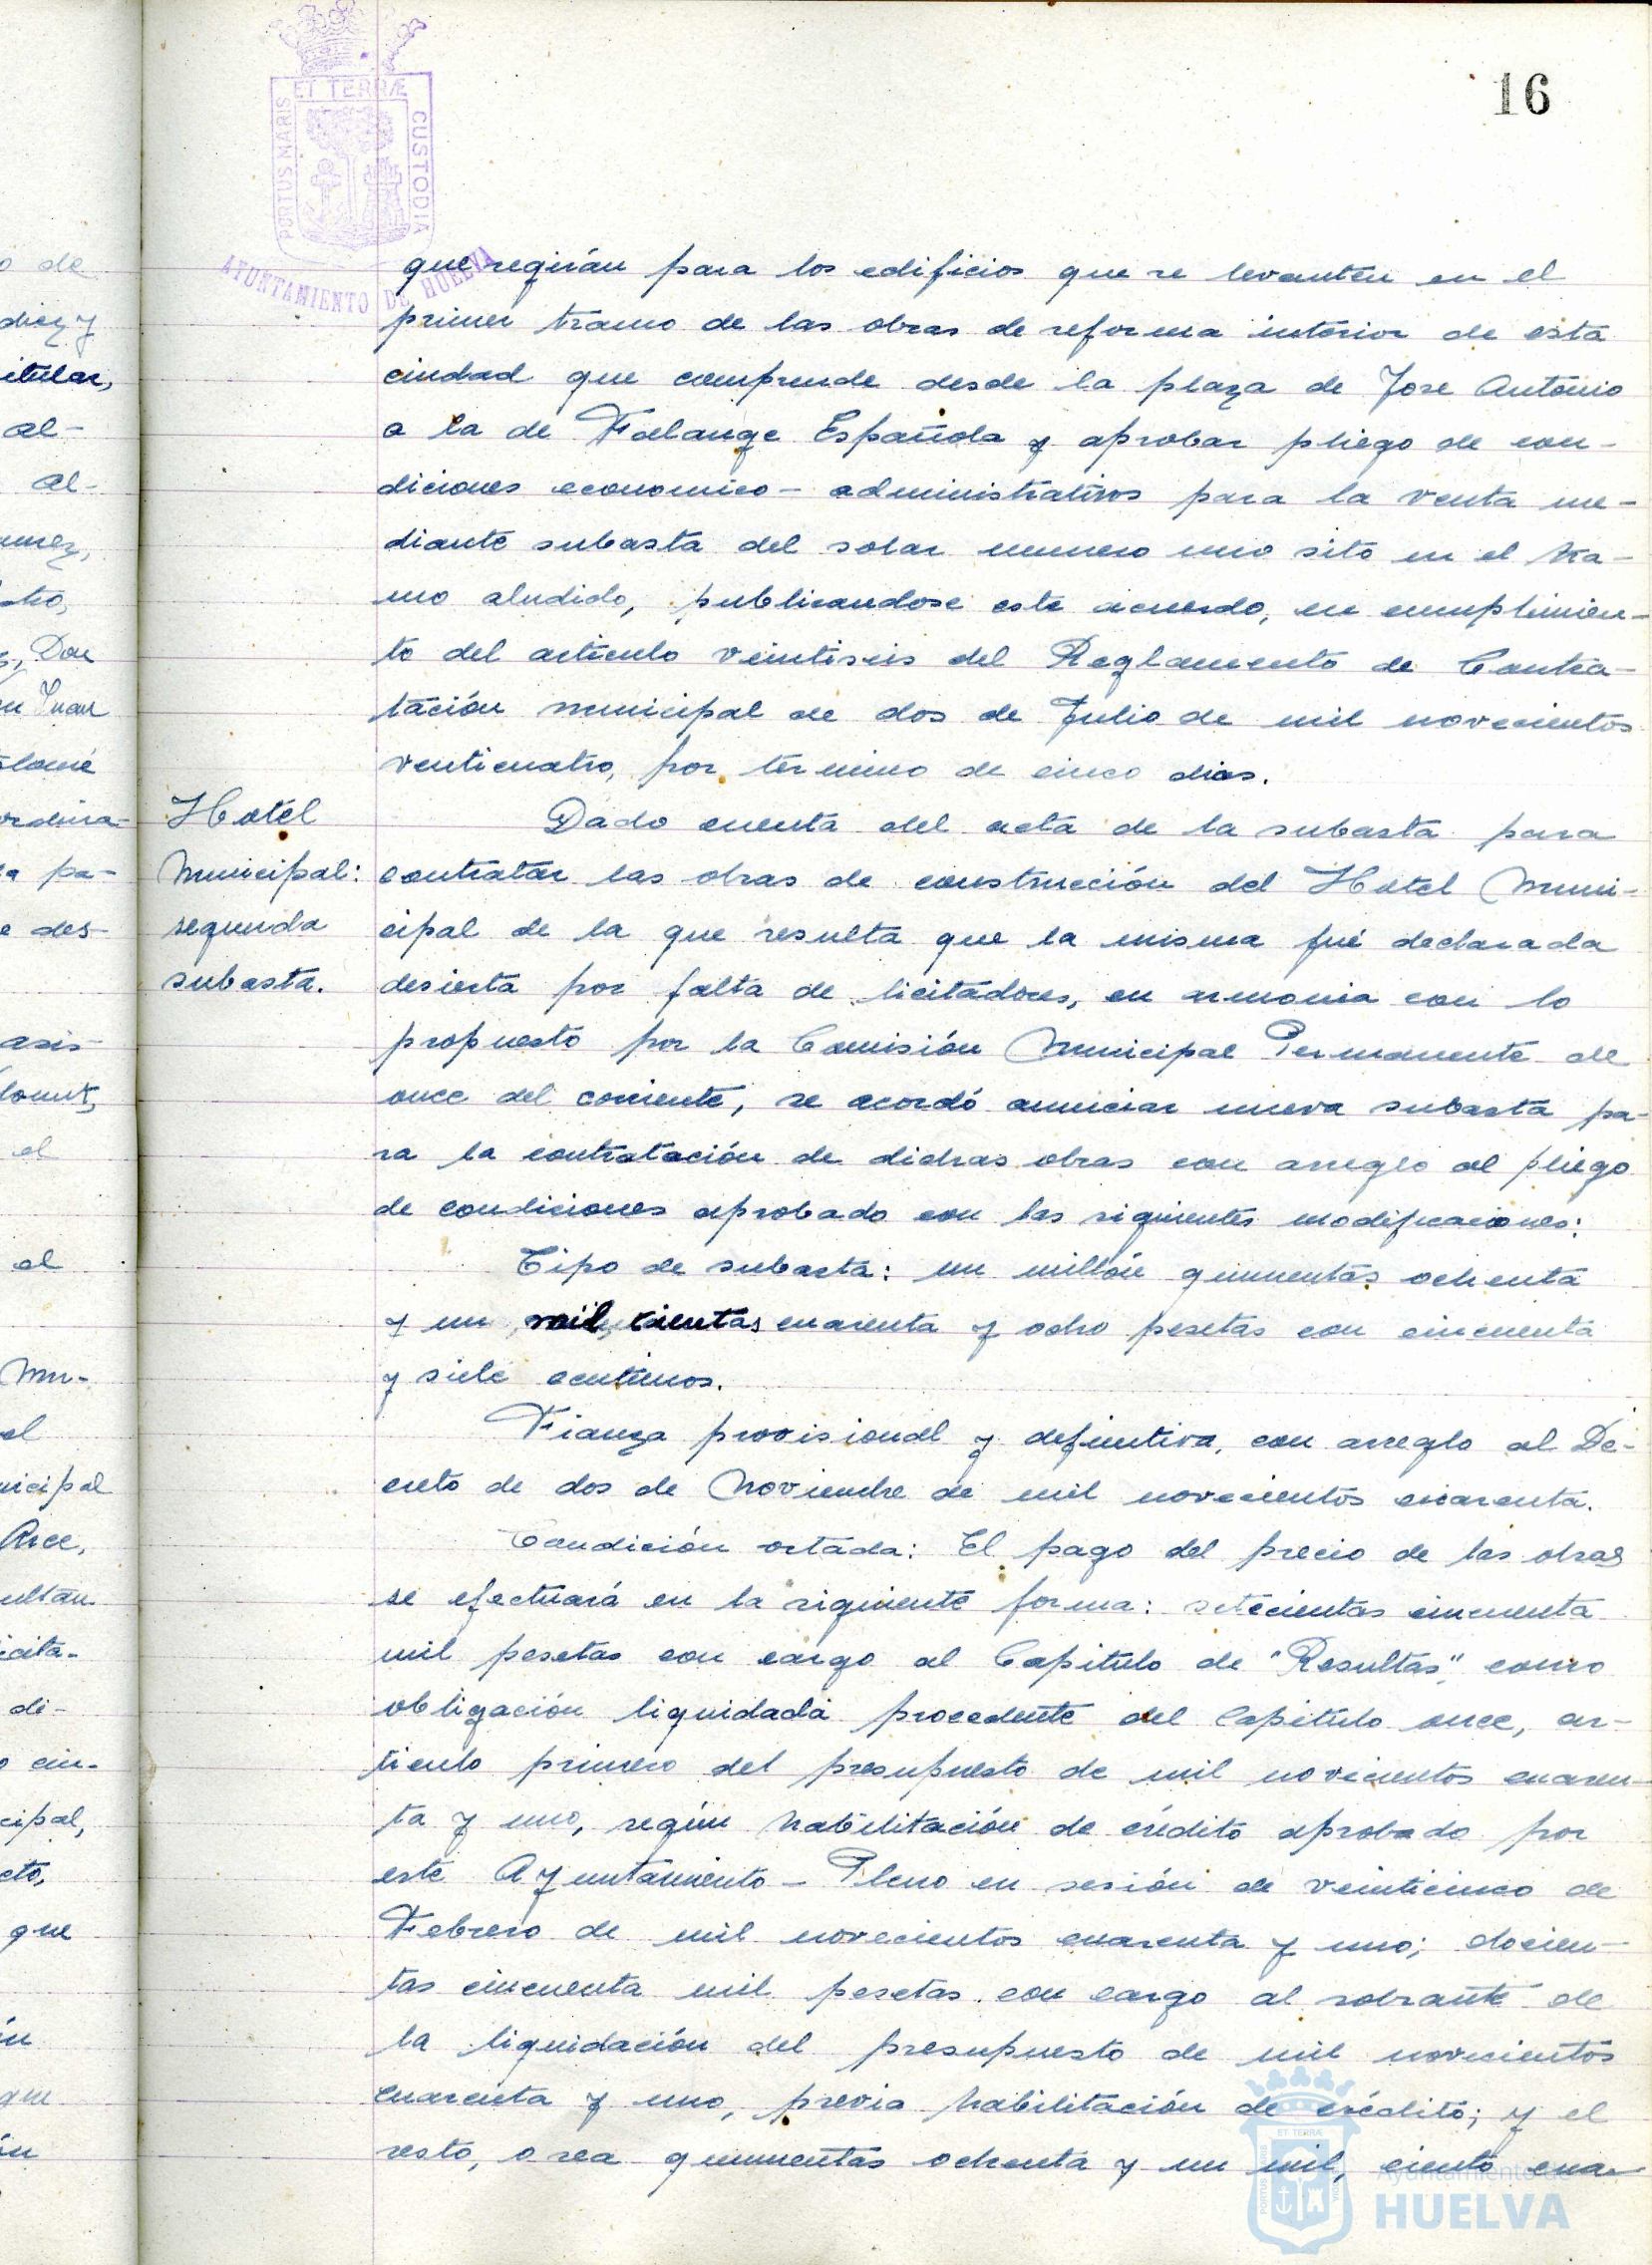 16
ET TERRÆ
PORTUS MARIS
CUSTODIA
AYUNTAMIENTO DE HUELVA
que regirán para los edificios que se levanten en el
primer tramo de las obras de reforma interior de esta
ciudad que comprende desde la plaza de Jose Antonio
a la de Falange Española y aprobar pliego de con-
diciones economico-administrativos para la venta me-
diante subasta del solar numero uno sito en el tra-
mo aludido, publicandose este acuerdo, en cumplimien-
to del articulo veintiseis del Reglamento de Contra-
tación municipal de dos de Julio de mil novecientos
venticuatro, por termino de cinco dias.
Hotel
Municipal:
segunda
subasta.
Dado cuenta del acta de la subasta para
contratar las obras de construcción del Hotel Muni-
cipal de la que resulta que la misma fué declarada
desierta por falta de licitadores, en armonia con lo
propuesto por la Comisión Municipal Permanente de
once del corriente, se acordó anunciar nueva subasta pa-
ra la contratación de dichas obras con arreglo al pliego
de condiciones aprobado con las siguientes modificaciones:
Tipo de subasta: un millón quinientas ochenta
y un mil cientas cuarenta y ocho pesetas con cincuenta
y siete centimos.
Fianza provisional y definitiva, con arreglo al De-
creto de dos de Noviembre de mil novecientos cuarenta.
Condición octada: El pago del precio de las obras
se efectuará en la siguiente forma: setecientas cincuenta
mil pesetas con cargo al Capitulo de "Resultas", como
obligación liquidada procedente del Capitulo once, ar-
ticulo primero del presupuesto de mil novecientos cuaren-
ta y uno, según habilitación de crédito aprobado por
este Ayuntamiento-Pleno en sesión de veinticinco de
Febrero de mil novecientos cuarenta y uno; docien-
tas cincuenta mil pesetas con cargo al sobrante de
la liquidación del presupuesto de mil novecientos
cuarenta y uno, previa habilitación de crédito; y el
resto, o sea quinientas ochenta y un mil, ciento cua-
Ayuntamiento de
HUELVA